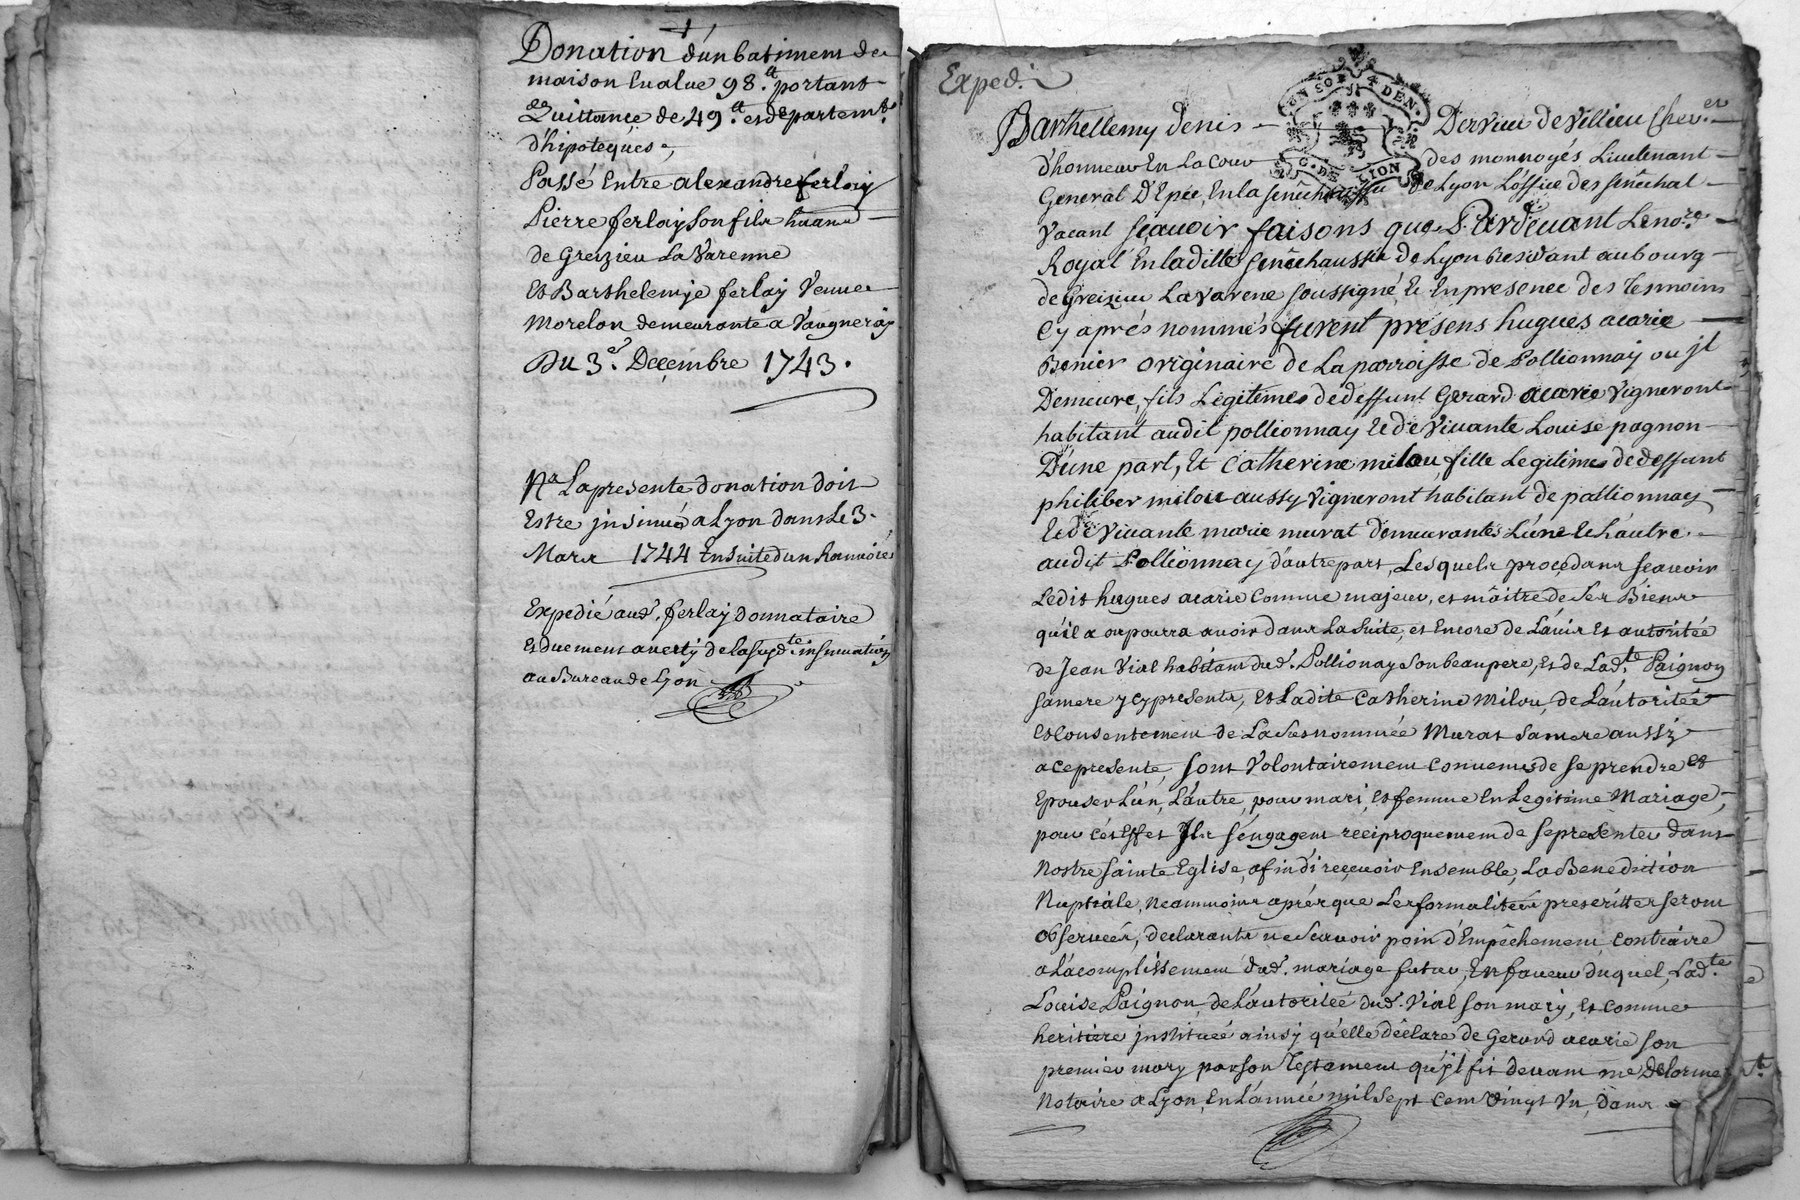 Donation d'un batiment de
maison Evalué 98.lt portant
Quittance de 49.lt et departemt.
d'hipoteques,
Passé Entre alexandre ferlay
Pierre ferlay Son fils
de Greizieu La Varenne
Et Barthelemye ferlay Veuve
Morelon demeurante a Vaugneray
Du 3.e Decembre 1743.
Na La presente donation doit
Estre jnsinuée a Lyon dans Le 3.
Mars 1744 Ensuite d'un
Expedié aud. ferlay donnataire
Et duement averty de la susdte. insinuation
au Bureau de Lyon
Exped.
GON SOL 4 DEN.
G. DE LION
Barthellemy denis Dervieu de Villieu Chever.
d'honneur En La Cour des monnoyés Lieutenant
General D'Epée, En la senêchaussée de Lyon L'office des senêchal
vacant sçavoir faisons que Pardevant Le nore.
Royal En laditte senêchaussée de Lyon Residant au bourg
de Greizieu La varene soussigné, Et En presence des Tesmoins
Cy aprés nommés furent presens hugues acarie
Benier originaire de La parroisse de Pollionnay ou jl
Demeure, fils Legitimes de deffunt Gerard acarie Vigneront
habitant audit pollionnay Et de Vivante Louise pagnon
D'une part, Et Catherine milou fille Legitimes de deffunt
philiber milou aussy Vigneront habitant de pollionnay
Et de Vivante marie murat demeurantes L'une Et L'autre
audit Pollionnay d'autre part, Lesquels procedans scavoir
Ledit hugues acarie Comme majeur, et mâitre de Ses Biens
qu'il a ou pourra avoir dans La Suite, et Encore de L'avis Et autoritée
de Jean Vial habitant dud. Pollionay Son beaupere, Et de Ladte. Paignon
Sa mere y cy presents, Et Ladite Catherine Milou, de L'autoritée
Et Consentement de La Susnommée Murat Sa mere aussi
a ce presente, sont Volontairement Convenus de se prendre et
Epouser L'un, L'autre, pour mari, Et femme En Legitime Mariage,
pour cét Effet Jls s'éngagent reciproquement de se presenter dans
Nostre Sainte Eglise, afin d'i reçevoir Ensemble, La Benediction
Nuptiale, Neammoins aprés que Les formalitées prescrittes seront
observées, declarants ne Scavoir poin d'Empêchement Contraire
a L'acomplissement dud. mariage futur, En faveur duquel, Ladte.
Louise Paignon, de L'autoritée dud. Vial Son mary, Et Comme
heritiere jnstituée ainsy qu'elle déclare de Gerard acarie son
premier mary par son Testament qu'jl fit devant me. Delorme
Notaire a Lyon, En L'année mil Sept Cent Vingt Un, dans